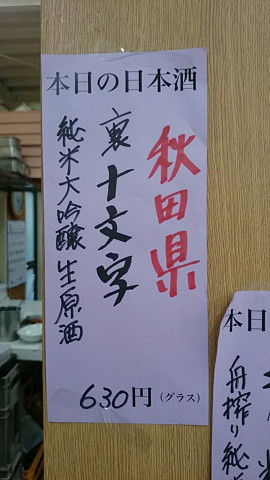 本日の日本酒
秋田県
裏十文字
純米大吟醸生原酒
630円(グラス)
本日
舟搾り純